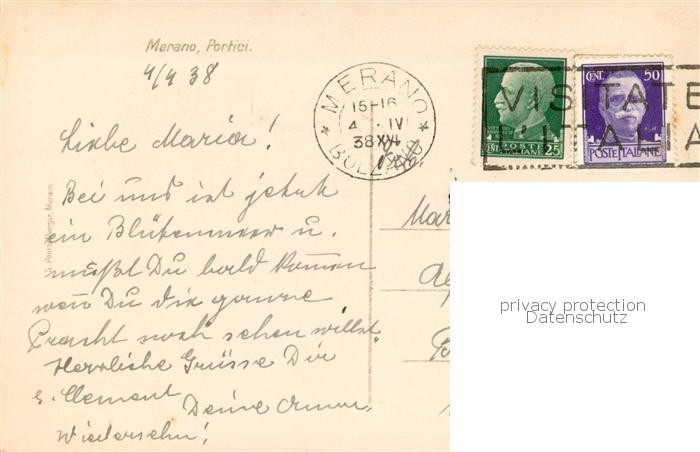 Merano, Portici.
4/4 38
MERANO
15-16
4 . IV
38 XVI
BOLZANO
VISITATE
L'ITALIA
POSTE
ITALIANE
CENT 25
CENT. 50
POSTE ITALIANE
Liebe Maria!
Bei uns ist jetzt
ein Blütenmeer u.
mußt Du bald kommen
wen Du die ganze
Pracht noch sehen willst
Herrliche Grüsse Dir
u. Clement
Deine
Wiedersehn!
privacy protection
Datenschutz